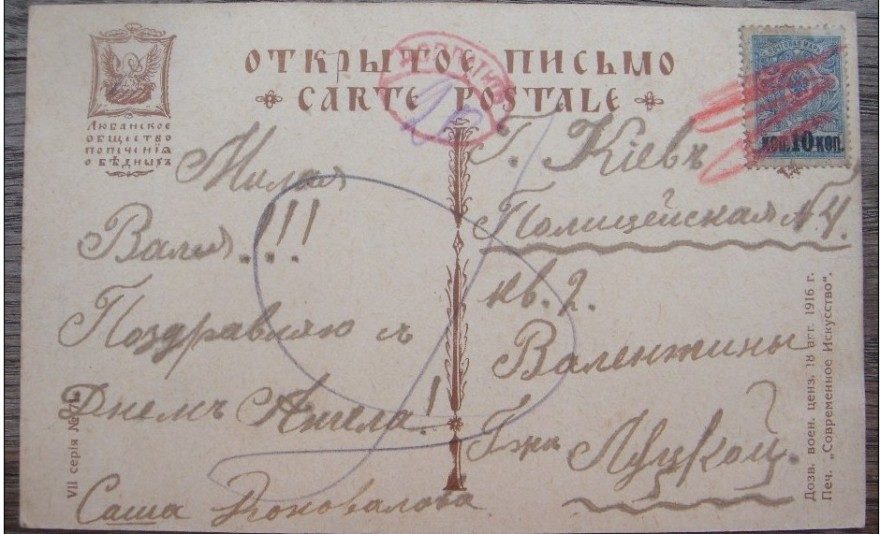 ОТКРЫТОЕ ПИСЬМО
CARTE POSTALE
Любанское
общество
попеченія
о бѣдныхъ
Милая
Валя!!!
Поздравляю съ
Днемъ Ангела!
Саша Коновалова
Г. Кіевъ
Полицейская № 4.
кв. 2.
Валентины
Луцкой.
коп. 10 коп.
VII серія №
Дозв. воен. ценз. 18 авг. 1916 г.
Печ. „Современное Искусство".